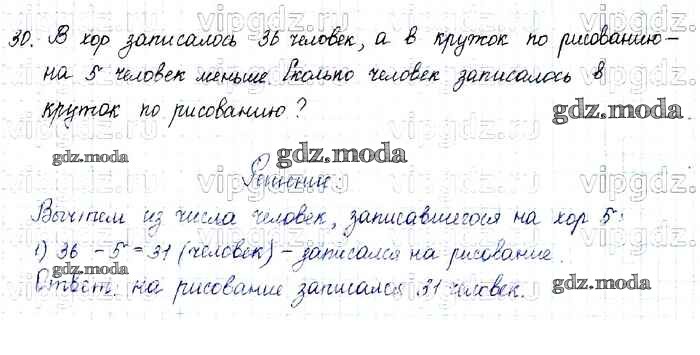 30. В хор записалось 36 человек, а в кружок по рисованию –
на 5 человек меньше. Сколько человек записалось в
кружок по рисованию?
gdz.moda
gdz.moda
gdz.moda
Решение:
Вычтем из числа человек, записавшегося на хор 5:
1) 36 - 5 = 31 (человек) – записался на рисование.
gdz.moda
gdz.moda
Ответ: на рисование записался 31 человек.